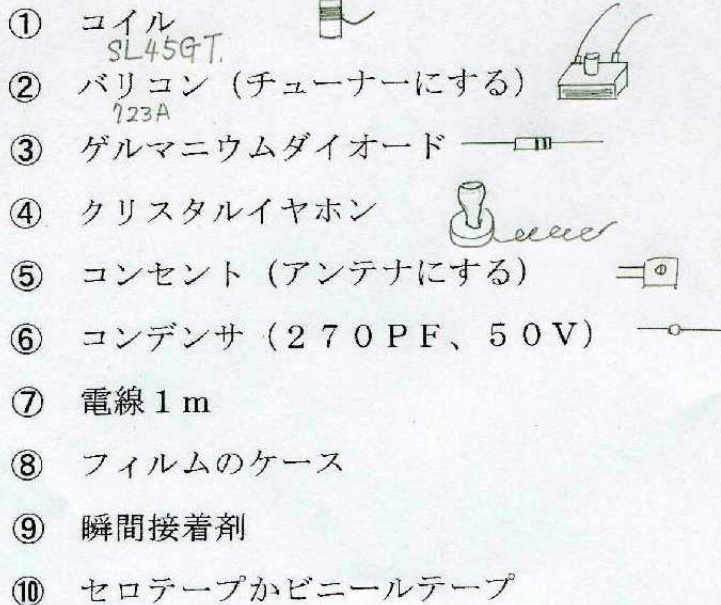 ① コイル
SL45GT.
② バリコン（チューナーにする）
123A
③ ゲルマニウムダイオード
④ クリスタルイヤホン
⑤ コンセント（アンテナにする）
⑥ コンデンサ（２７０ＰＦ、５０Ｖ）
⑦ 電線１ｍ
⑧ フィルムのケース
⑨ 瞬間接着剤
⑩ セロテープかビニールテープ